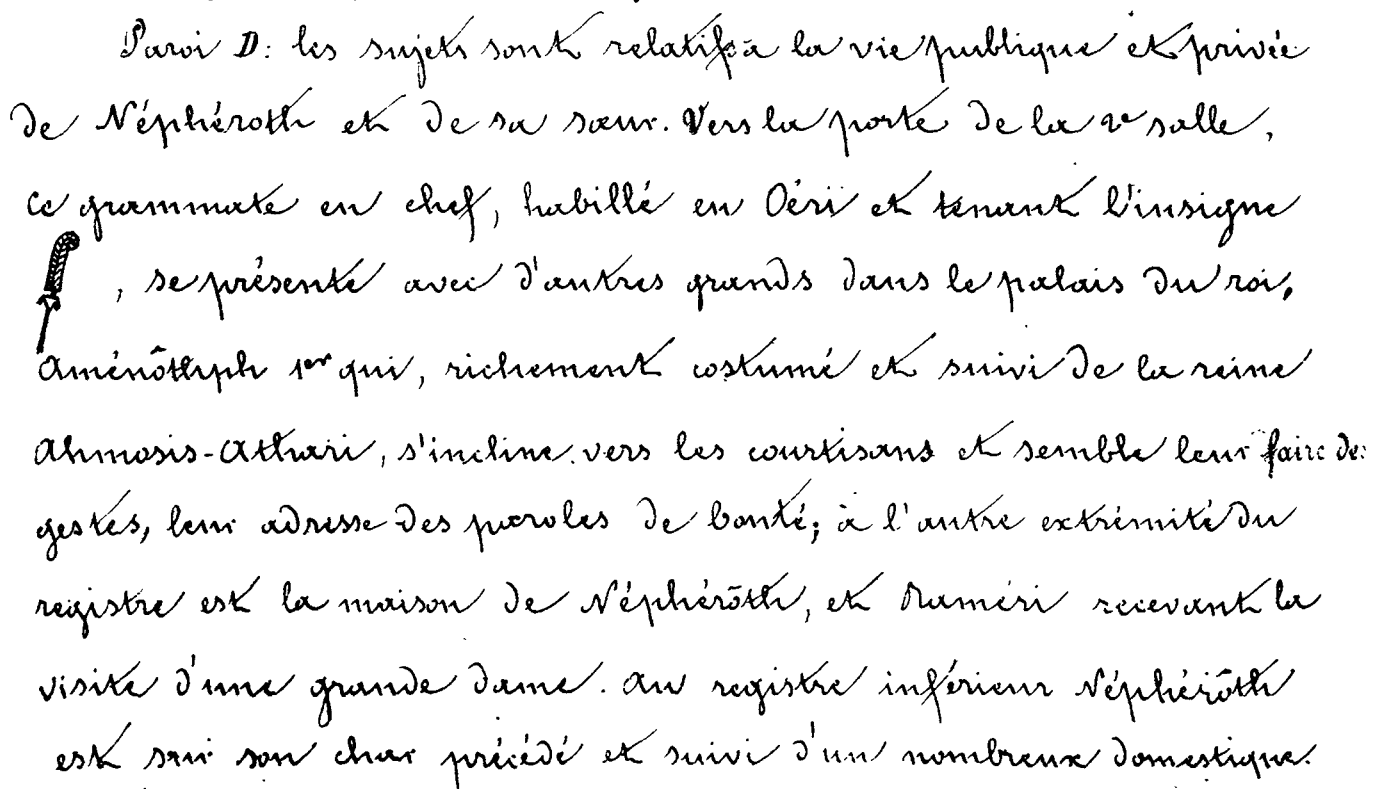 Paroi D: les sujets sont relatifs à la vie publique et privée
de Néphéroth et de sa sœur. Vers la porte de la 2e salle,
ce grammate en chef, habillé en Oëri et tenant l'insigne
, se présente avec d'autres grands dans le palais du roi,
Aménôthph 1er qui, richement costumé et suivi de la reine
Ahmosis-Athari, s'incline vers les courtisans et semble leur faire des
gestes, leur adresse des paroles de bonté; à l'autre extrémité du
registre est la maison de Néphérōth, et Raméri recevant la
visite d'une grande dame. Au registre inférieur Néphérôth
est sur son char précédé et suivi d'un nombreux domestique.